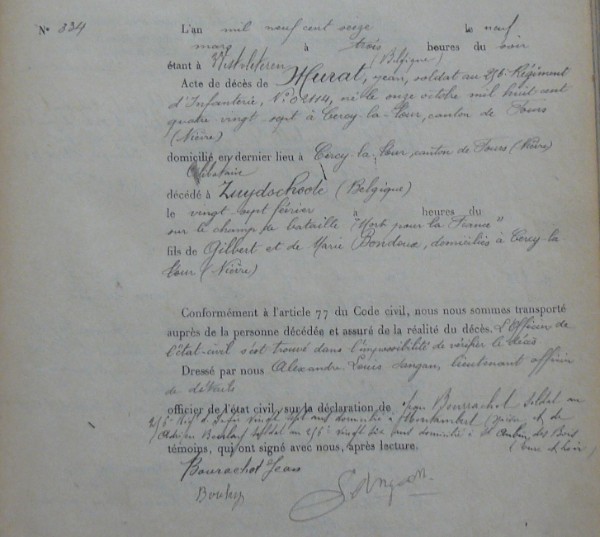 N° 334
L'an mil neuf cent seize le neuf
mars à trois heures du soir
étant à Westvleteren (Belgique)
Acte de décès de Murat, Jean, soldat au 256 Régiment
d'Infanterie, N° 02114, né le onze octobre mil huit cent
quatre vingt sept à Cercy-la-Tour, canton de Fours
(Nièvre)
domicilié en dernier lieu à Cercy-la-Tour, canton de Fours (Nièvre)
Célibataire
décédé à Zuydschoote (Belgique)
le vingt sept février à heures du
sur le champ de bataille "Mort pour la France"
fils de Gilbert et de Marie Bondoux, domiciliés à Cercy-la
Tour (Nièvre)
Conformément à l'article 77 du Code civil, nous nous sommes transporté
auprès de la personne décédée et assuré de la réalité du décès. L'Officier de
l'état-civil s'est trouvé dans l'impossibilité de vérifier le décès
Dressé par nous Alexandre Louis, lieutenant officier
de détails
officier de l'état civil, sur la déclaration de Jean Bourrachot soldat au
256 Reg d'Infie vingt sept ans domicilié à (Nièvre) et de
soldat au 256 vingt ans domicilié à St Aubin des Bois
témoins, qui ont signé avec nous, après lecture.
Bourachot Jean